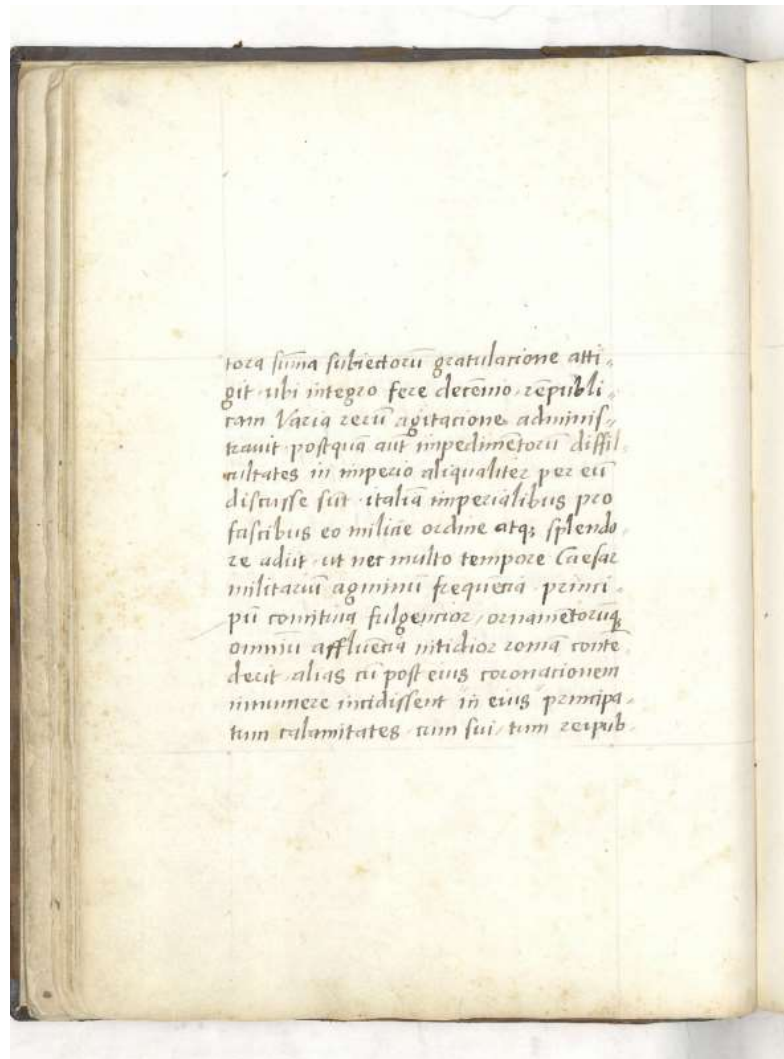 tora sum̄a subiectorū gratulacione atti„
git ubi integro fere decēnio rēpubli„
cam Varia rerū agitacione adminis„
travit postquā aut̄ impedimētorū diffil
cultates in imperio aliqualiter per eū
discusse sūt italiā imperialibus pro
fascibus eo milicie ordine atq; splendo
re adiit ut nec multo tempore Caesar
militariū agminū frequēcia princi„
pū comitiva fulgencior ornamētorūq;
omniū affluēcia nitidior romā conte
derit alias cū post eius coronacionem
innumere incidissent in eius principa„
tum calamitates cum sui tum reipub„